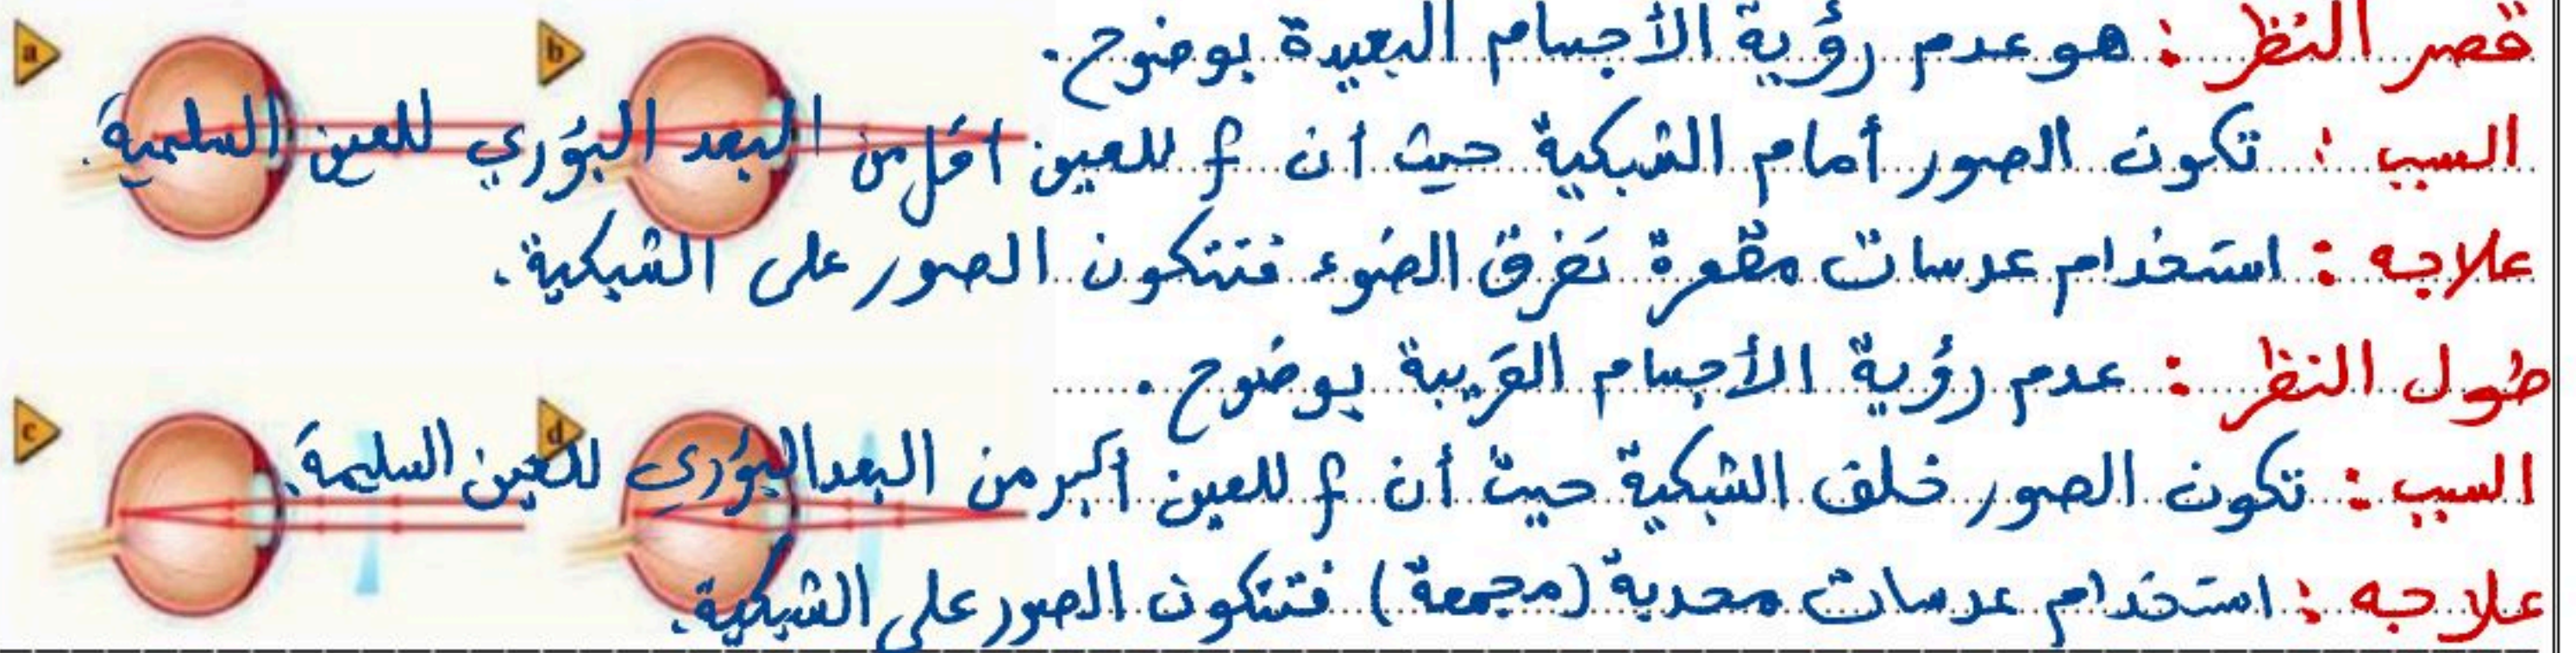 قصر النظر : هو عدم رؤية الأجسام البعيدة بوضوح.
السبب : تكون الصور أمام الشبكية حيث أن f للعين أقل من البعد البؤري للعين السليمة.
علاجه : استخدام عدسات مقعرة تفرق الضوء فتتكون الصور على الشبكية.
طول النظر : عدم رؤية الأجسام القريبة بوضوح.
السبب : تكون الصور خلف الشبكية حيث أن f للعين أكبر من البعد البؤري للعين السليمة.
علاجه : استخدام عدسات محدبة (مجمعة) فتتكون الصور على الشبكية.
a
b
c
d